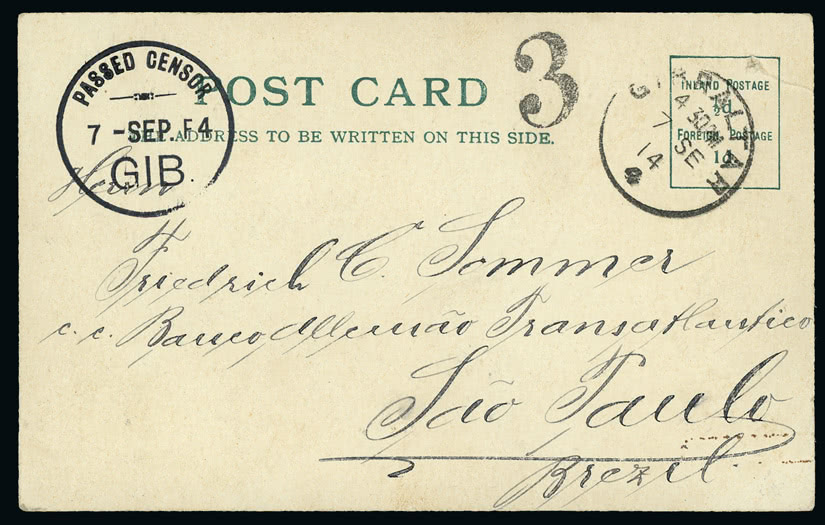 PASSED CENSOR
7 - SEP. F4
GIB
POST CARD
THE ADDRESS TO BE WRITTEN ON THIS SIDE.
3
GIBRALTAR
4 30PM
7 SE
14
INLAND POSTAGE
½d
FOREIGN POSTAGE
1d
Herrn
Friedrich C. Sommer
c. c. Banco Allemão Transatlantico
São Paulo
Brezil.